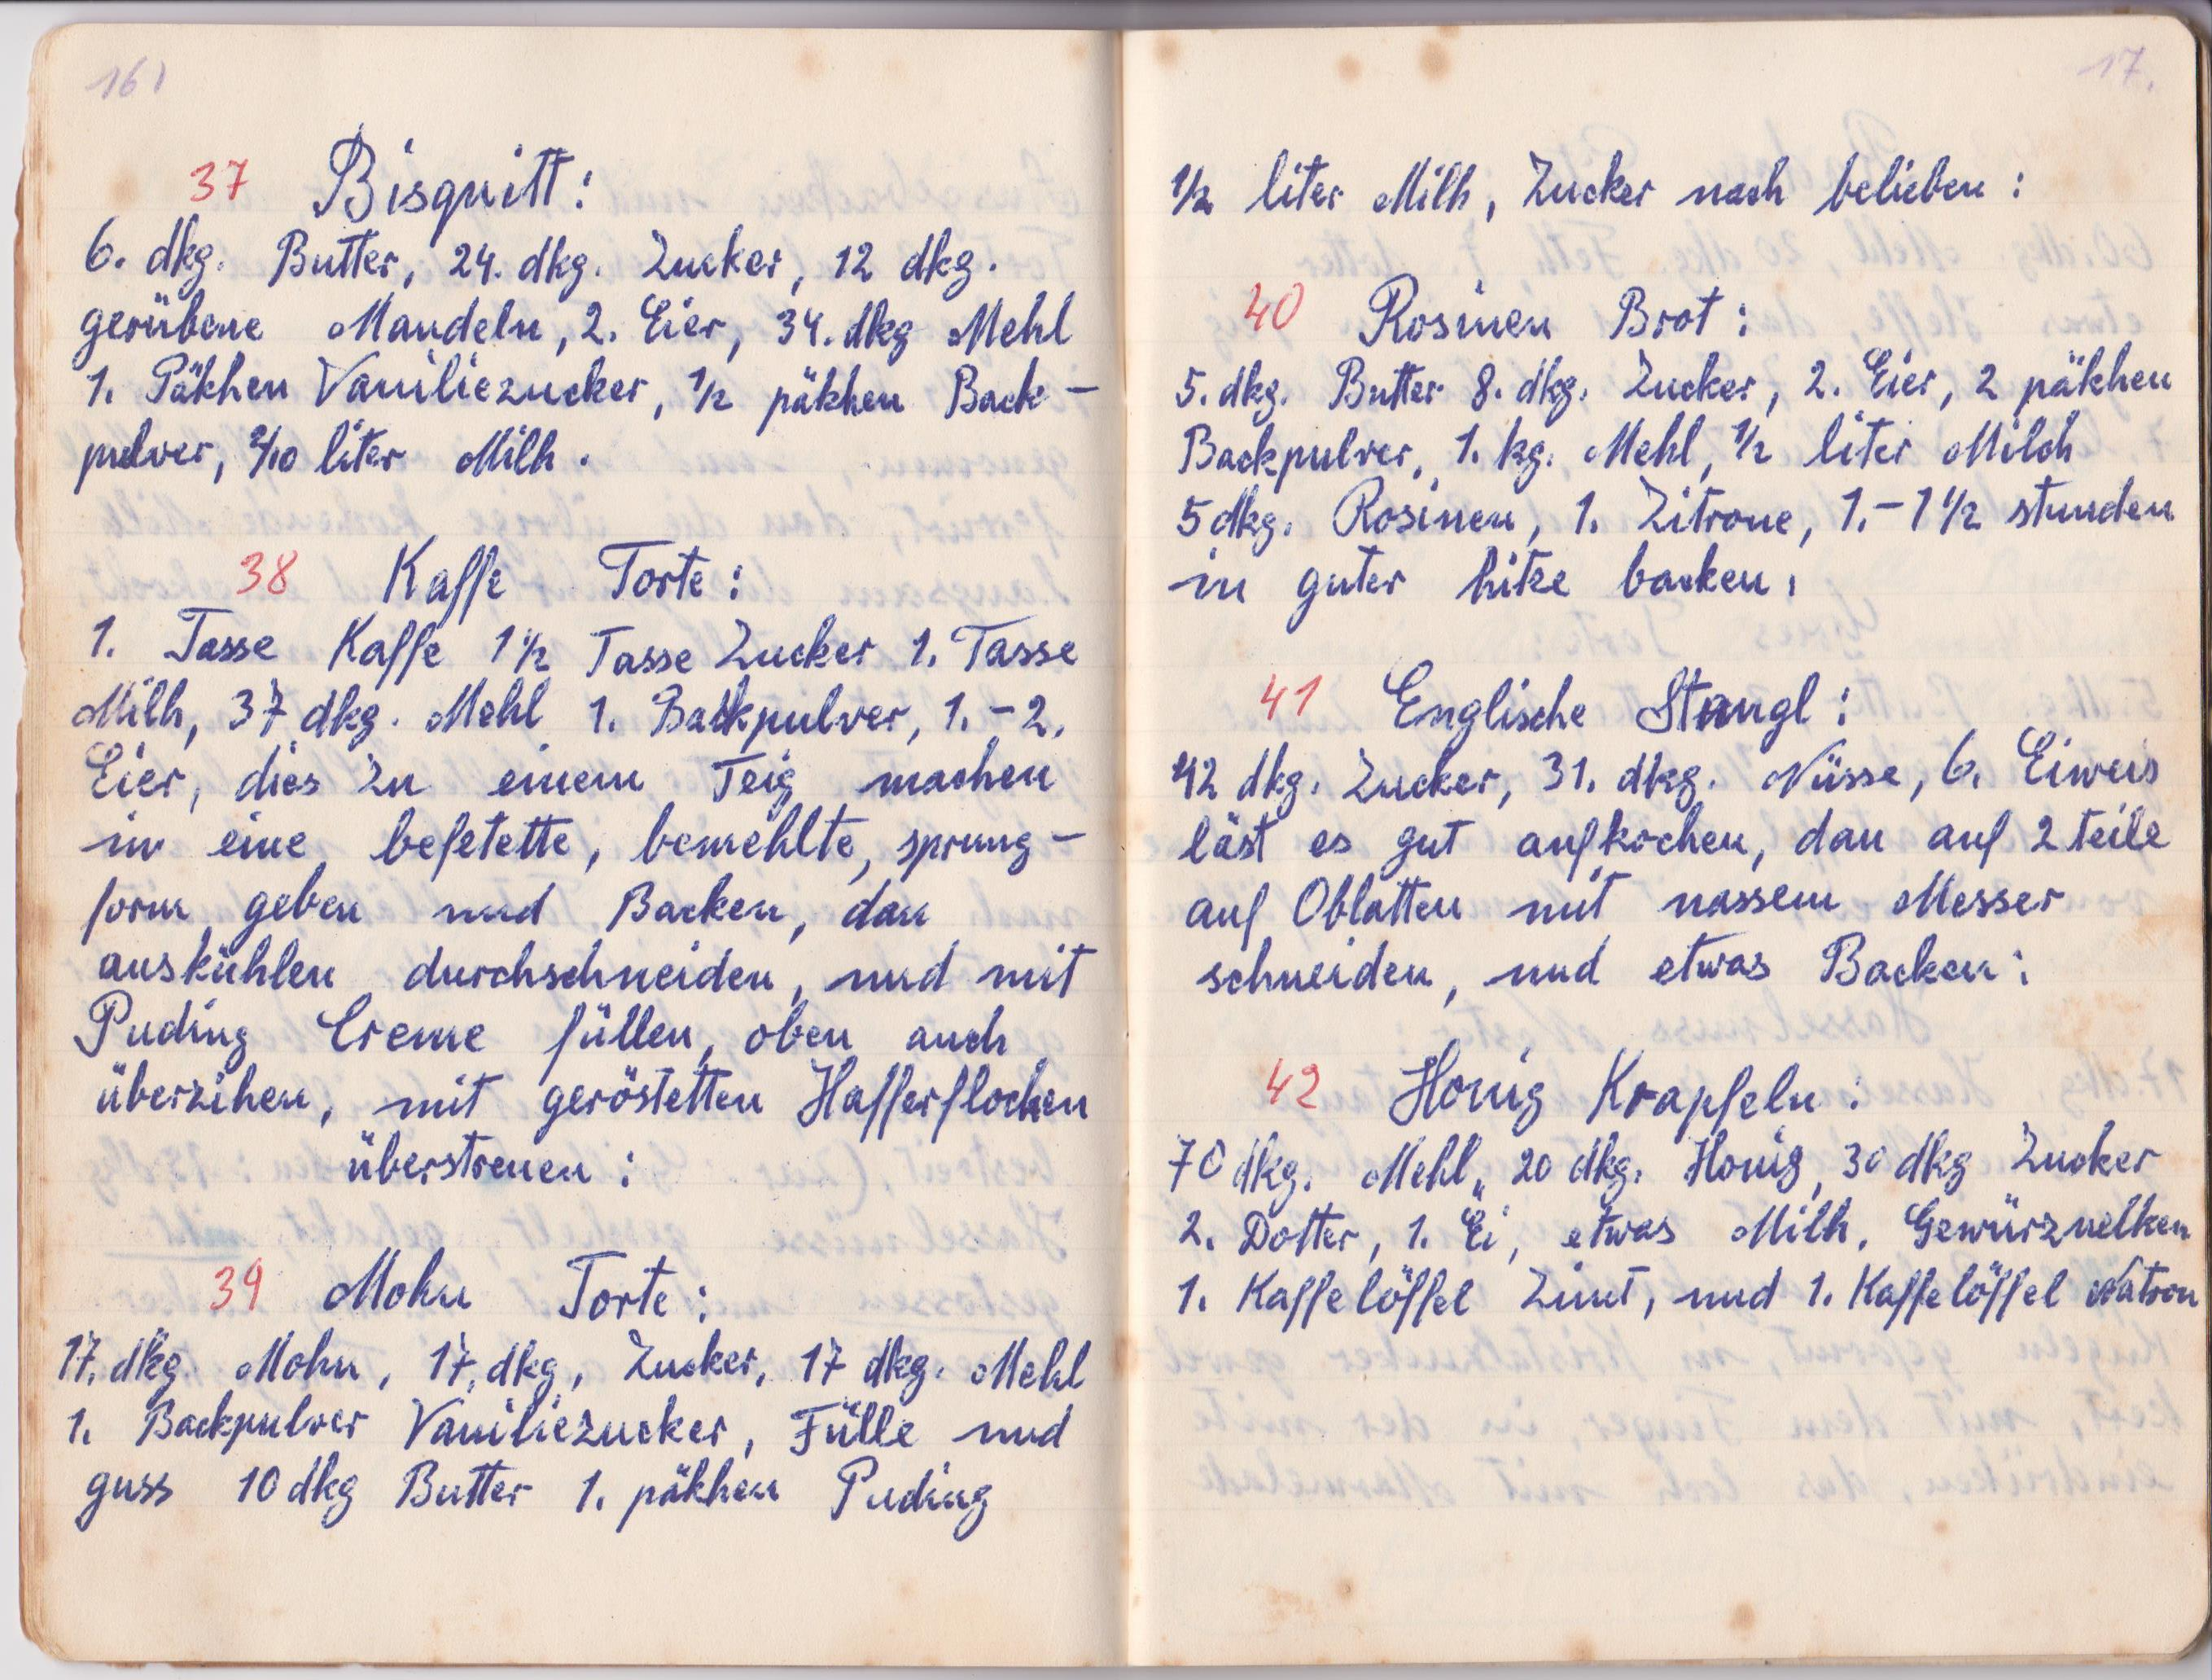 16)
37 Bisquitt:
6. dkg. Butter, 24. dkg. Zucker, 12 dkg.
gerübene Mandeln, 2. Eier, 34. dkg Mehl
1. Päkhen Vaniliezucker, 1/2 päkhen Back-
pulver, 2/10 liter Milh.
38 Kaffe Torte:
1. Tasse Kaffe 1 1/2 Tasse Zucker 1. Tasse
Milh, 37 dkg. Mehl 1. Backpulver, 1.-2.
Eier, dies zu einem Teig machen
in eine befetette, bemehlte, sprung-
form geben und Backen, dan
auskühlen durchschneiden, und mit
Puding Creme füllen, oben auch
überzihen, mit geröstetten Hafferflocken
überstreuen:
39 Mohn Torte:
17. dkg. Mohn, 17. dkg, Zucker, 17 dkg. Mehl
1. Backpulver Vaniliezucker, Fülle und
guss 10 dkg Butter 1. päkhen Puding
17.
1/2 liter Milh, Zucker nach belieben:
40 Rosinen Brot:
5. dkg. Butter 8. dkg. Zucker, 2. Eier, 2 päkhen
Backpulver, 1. kg. Mehl, 1/2 liter Milch
5 dkg. Rosinen, 1. Zitrone, 1.-1 1/2 stunden
in guter hitze backen,
41 Englische Stangl:
42 dkg. Zucker, 31. dkg. Nüsse, 6. Eiweis
läst es gut aufkochen, dan auf 2 teile
auf Oblatten mit nassem Messer
schneiden, und etwas Backen:
42 Honig Krapfeln:
70 dkg. Mehl,, 20 dkg. Honig, 30 dkg Zucker
2. Dotter, 1. Ei, etwas Milh, Gewürznelken
1. Kaffelöffel Zimt, und 1. Kaffelöffel Natron